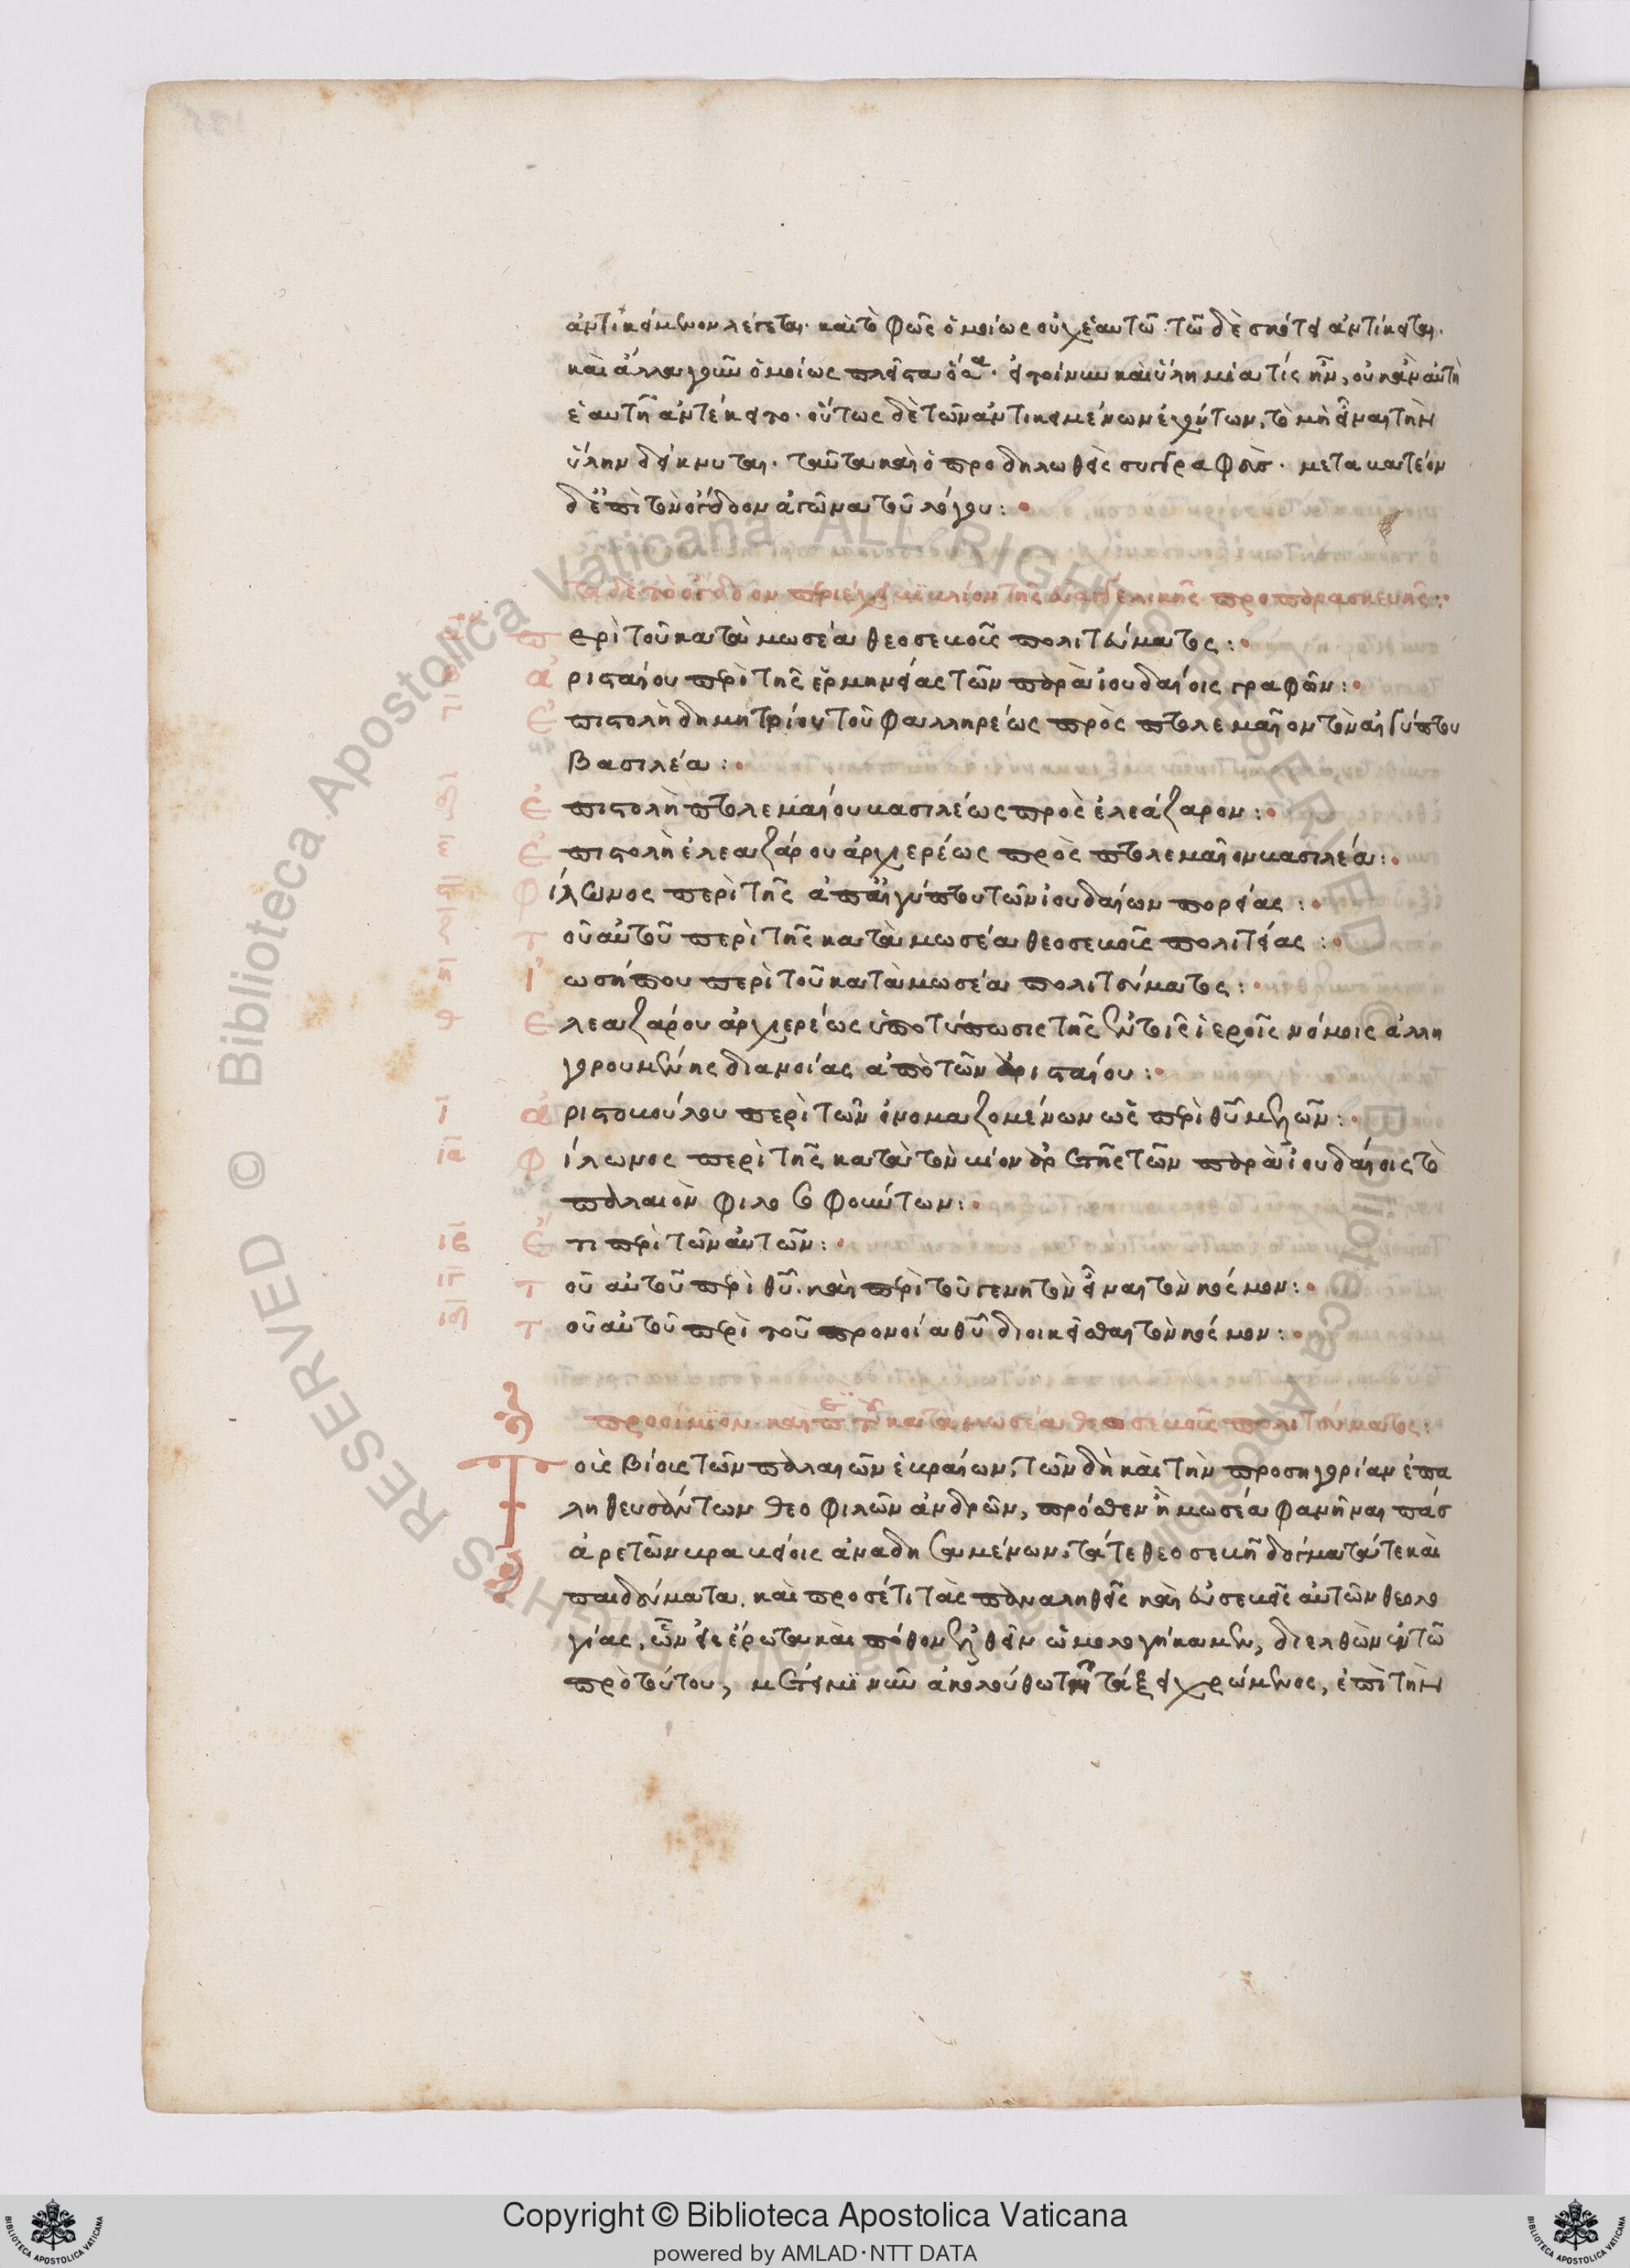 ἀντικείμενον λέγεται· καὶ τὸ φῶς ὁμοίως οὐχ ἑαυτῶ· τῶ δὲ σκότει ἀντίκειται·
καὶ ἄλλα γοῦν ὁμοίως πλεῖστα ὅσα· εἰ τοίνυν καὶ ὕλη μία τίς ἦν, οὐκ ἂν αὐτὴ
ἑαυτῆ ἀντέκειτο· οὕτως δὲ τῶν ἀντικειμένων ἐχόντων, τὸ μὴ εἶναι τὴν
ὕλην δείκνυται· ταῦτα καὶ ὁ προδηλωθεὶς συγγραφεύς· μετακλητέον
δὲ ἐπὶ τὸν ὄγδοον ἀγῶνα τοῦ λόγου:
Τάδε τὸ ὄγδοον περιέχει βιβλίον τῆς εὐαγγελικῆς προπαρασκευῆς:
Περὶ τοῦ κατὰ μωσέα θεοσεβοῦς πολιτεύματος:
Ἀρισταίου περὶ τῆς ἑρμηνείας τῶν παρὰ ἰουδαίοις γραφῶν:
Ἐπιστολὴ δημητρίου τοῦ φαλληρέως πρὸς πτολεμαῖον τὸν αἰγύπτου
βασιλέα:
δ Ἐπιστολὴ πτολεμαίου βασιλέως πρὸς ἐλεάζαρον:
ε Ἐπιστολὴ ἐλεαζάρου ἀρχιερέως πρὸς πτολεμαῖον βασιλέα:
ϛ Φίλωνος περὶ τῆς ἀπ' αἰγύπτου τῶν ἰουδαίων πορείας:
ζ Τοῦ αὐτοῦ περὶ τῆς κατὰ μωσέα θεοσεβοῦς πολιτείας:
η Ἰωσήπου περὶ τοῦ κατὰ μωσέα πολιτεύματος:
θ Ἐλεαζάρου ἀρχιερέως ὑποτύπωσις τῆς ἐν τοῖς ἱεροῖς νόμοις ἀλλη
γορουμένης διανοίας ἀπὸ τῶν ἀρισταίου:
ι Ἀριστοβούλου περὶ τῶν ὀνομαζομένων ὡς περὶ θυ μελῶν:
ια Φίλωνος περὶ τῆς κατὰ τὸν βίον ἀρετῆς τῶν παρὰ ἰουδαίοις τὸ
παλαιὸν φιλοσοφούντων:
ιβ Ἔτι περὶ τῶν αὐτῶν:
ιγ Τοῦ αὐτοῦ περὶ θυ· καὶ περὶ τοῦ γενητὸν εἶναι τὸν κόσμον:
ιδ Τοῦ αὐτοῦ περὶ τοῦ προνοία θυ διοικεῖσθαι τὸν κόσμον:
προοίμιον· καὶ περὶ τοῦ κατὰ μωσέα θεοσεβοῦς πολιτεύματος:
Τοῖς βίοις τῶν παλαιῶν ἑβραίων, τῶν δὴ καὶ τὴν προσηγορίαν ἐπα
ληθευσάντων θεοφιλῶν ἀνδρῶν, πρόσθεν ἢ μωσέα φανῆναι πάσ
ἀρετῶν βραβείοις ἀναδησαμένων, τά τε θεοσεβῆ δόγματά τε καὶ
παιδεύματα, καὶ προσέτι τὰς παναληθεῖς καὶ εὐσεβεῖς αὐτῶν θεολο
γίας, ὧν εἰς ἔρωτα καὶ πόθον ἐλθεῖν ὡμολογήκαμεν, διελθὼν ἐν τῶ
πρὸ τούτου, μέτειμι νῦν ἀκολούθω τῆ τάξει χρώμενος, ἐπὶ τὴν
Copyright © Biblioteca Apostolica Vaticana
powered by AMLAD・NTT DATA